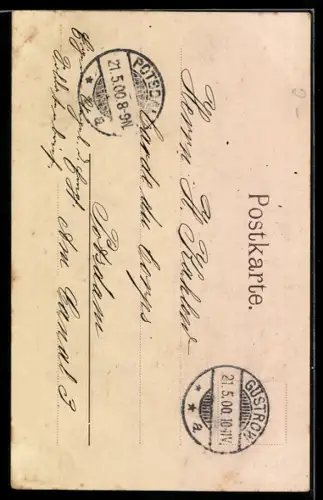 Postkarte.
GÜSTROW
21.5.00.10-11V.
* a
Herrn H. Kahlw
Garde du Corps
Potsdam
Am Canal 3.
POTSDAM
21.5.00.8-9N.